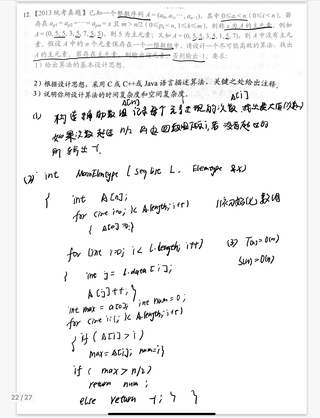 12.【2013 统考真题】已知一个整数序列 A = (a₀, a₁, …, aₙ₋₁), 其中 0≤aᵢ<n (0≤i<n)。若
存在 aₚ₁ = aₚ₂ = … = aₚₘ = x 且 m > n/2 (0≤pₖ<n, 1≤k≤m), 则称 x 为 A 的主元素。例如
A = (0, 5, 5, 3, 5, 7, 5, 5), 则 5 为主元素; 又如 A = (0, 5, 5, 3, 5, 1, 5, 7), 则 A 中没有主元
素。假设 A 中的 n 个元素保存在一个一维数组中, 请设计一个尽可能高效的算法, 找出
A 的主元素。若存在主元素, 则输出该元素; 否则输出-1。要求:
1) 给出算法的基本设计思想。
2) 根据设计思想, 采用 C 或 C++或 Java 语言描述算法, 关键之处给出注释。
3) 说明你所设计算法的时间复杂度和空间复杂度。
A[n] A[i]
(1) 构造辅助数组 记录每个元素出现的次数
如果次数超过 n/2
int MainElemtype ( Sqlist L, Elemtype &x)
{ int A[n];
for (int i=0; i< A.length; i++) //初始化数组
{ A[i]=0;}
for (int i=0; i< L.length; i++) (3) T(n)=O(n)
{ int j= L.data[i]; S(n)=O(n)
A[j]++; }
int max = a[0]; int num=0;
for (int i=1; i< A.length; i++)
{ if (A[i]>i)
max=A[i]; num=i}
if ( max > n/2)
return num ;
else return -1; } }
22 / 27